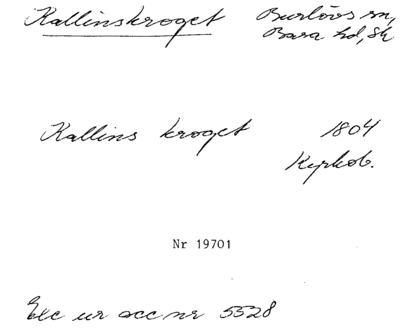 Kallinskroget Burlövs sn,
Bara hd, Sk
Kallins kroget 1804
Kyrkob.
Nr 19701
Exc ur acc nr 5528